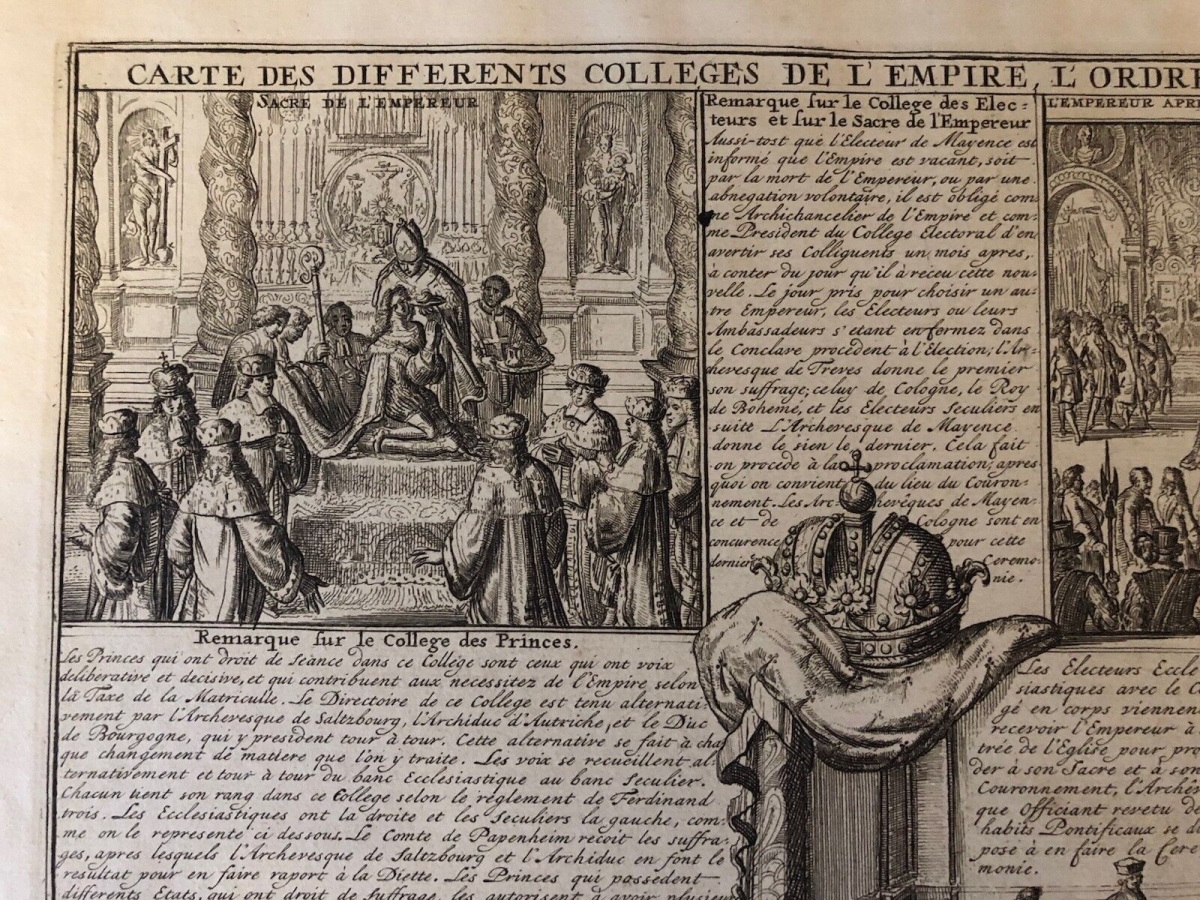 CARTE DES DIFFERENTS COLLEGES DE L'EMPIRE, L'ORDRE
SACRE DE L'EMPEREUR
Remarque sur le College des Elec=
teurs et sur le Sacre de l'Empereur
Aussi-tost que l'Electeur de Mayence est
informé que l'Empire est vacant, soit
par la mort de l'Empereur, ou par une
abnegation volontaire, il est obligé com
me Archichancelier de l'Empire et com=
me President du College Electoral d'en
avertir ses Colliguents un mois apres,
à conter du jour qu'il à receu cette nou=
velle. Le jour pris pour choisir un au=
tre Empereur, les Electeurs ou leurs
Ambassadeurs s'etant enfermez dans
le Conclave procèdent à l'Election, l'Ar=
chevesque de Treves donne le premier
son suffrage; celuy de Cologne, le Roy
de Boheme, et les Electeurs seculiers en
suite L'Archeresque de Mayence
donne le sien le dernier. Cela fait
on procede à la proclamation, apres
quoi on convient du lieu du Couron=
nement. Les Archevêques de Mayen=
ce et de Cologne sont en
concurence pour cette
derniere Ceremo=
nie.
L'EMPEREUR APRE
Remarque sur le College des Princes.
Les Princes qui ont droit de seance dans ce College sont ceux qui ont voix
deliberative et decisive, et qui contribuent aux necessitez de l'Empire selon
la Taxe de la Matriculle. Le Directoire de ce College est tenu alternati=
vement par l'Archeresque de Saltzbourg, l'Archiduc d'Autriche, et le Duc
de Bourgogne, qui y president tour à tour. Cette alternative se fait à cha
que changement de matiere que l'on y traite. Les voix se recueillent al
ternativement et tour à tour du banc Ecclesiastique au banc seculier.
Chacun tient son rang dans ce College selon le règlement de Ferdinand
trois. Les Ecclesiastiques ont la droite et les seculiers la gauche, com=
me on le represente ci dessous. Le Comte de Papenheim reçoit les suffra=
ges, apres lesquels l'Archeresque de Saltzbourg et l'Archiduc en font le
resultat pour en faire raport à la Diette. Les Princes qui possedent
differents Etats, qui ont droit de suffrage, les autorisent à avoir plusieurs
Les Electeurs Eccle
siastiques avec le
gé en corps viennent
recevoir l'Empereur à
trée de l'Eglise pour pro
der à son Sacre et à son
Couronnement, l'Archev
que Officiant revetu de
habits Pontificaux se d
pose à en faire la Cere
monie.